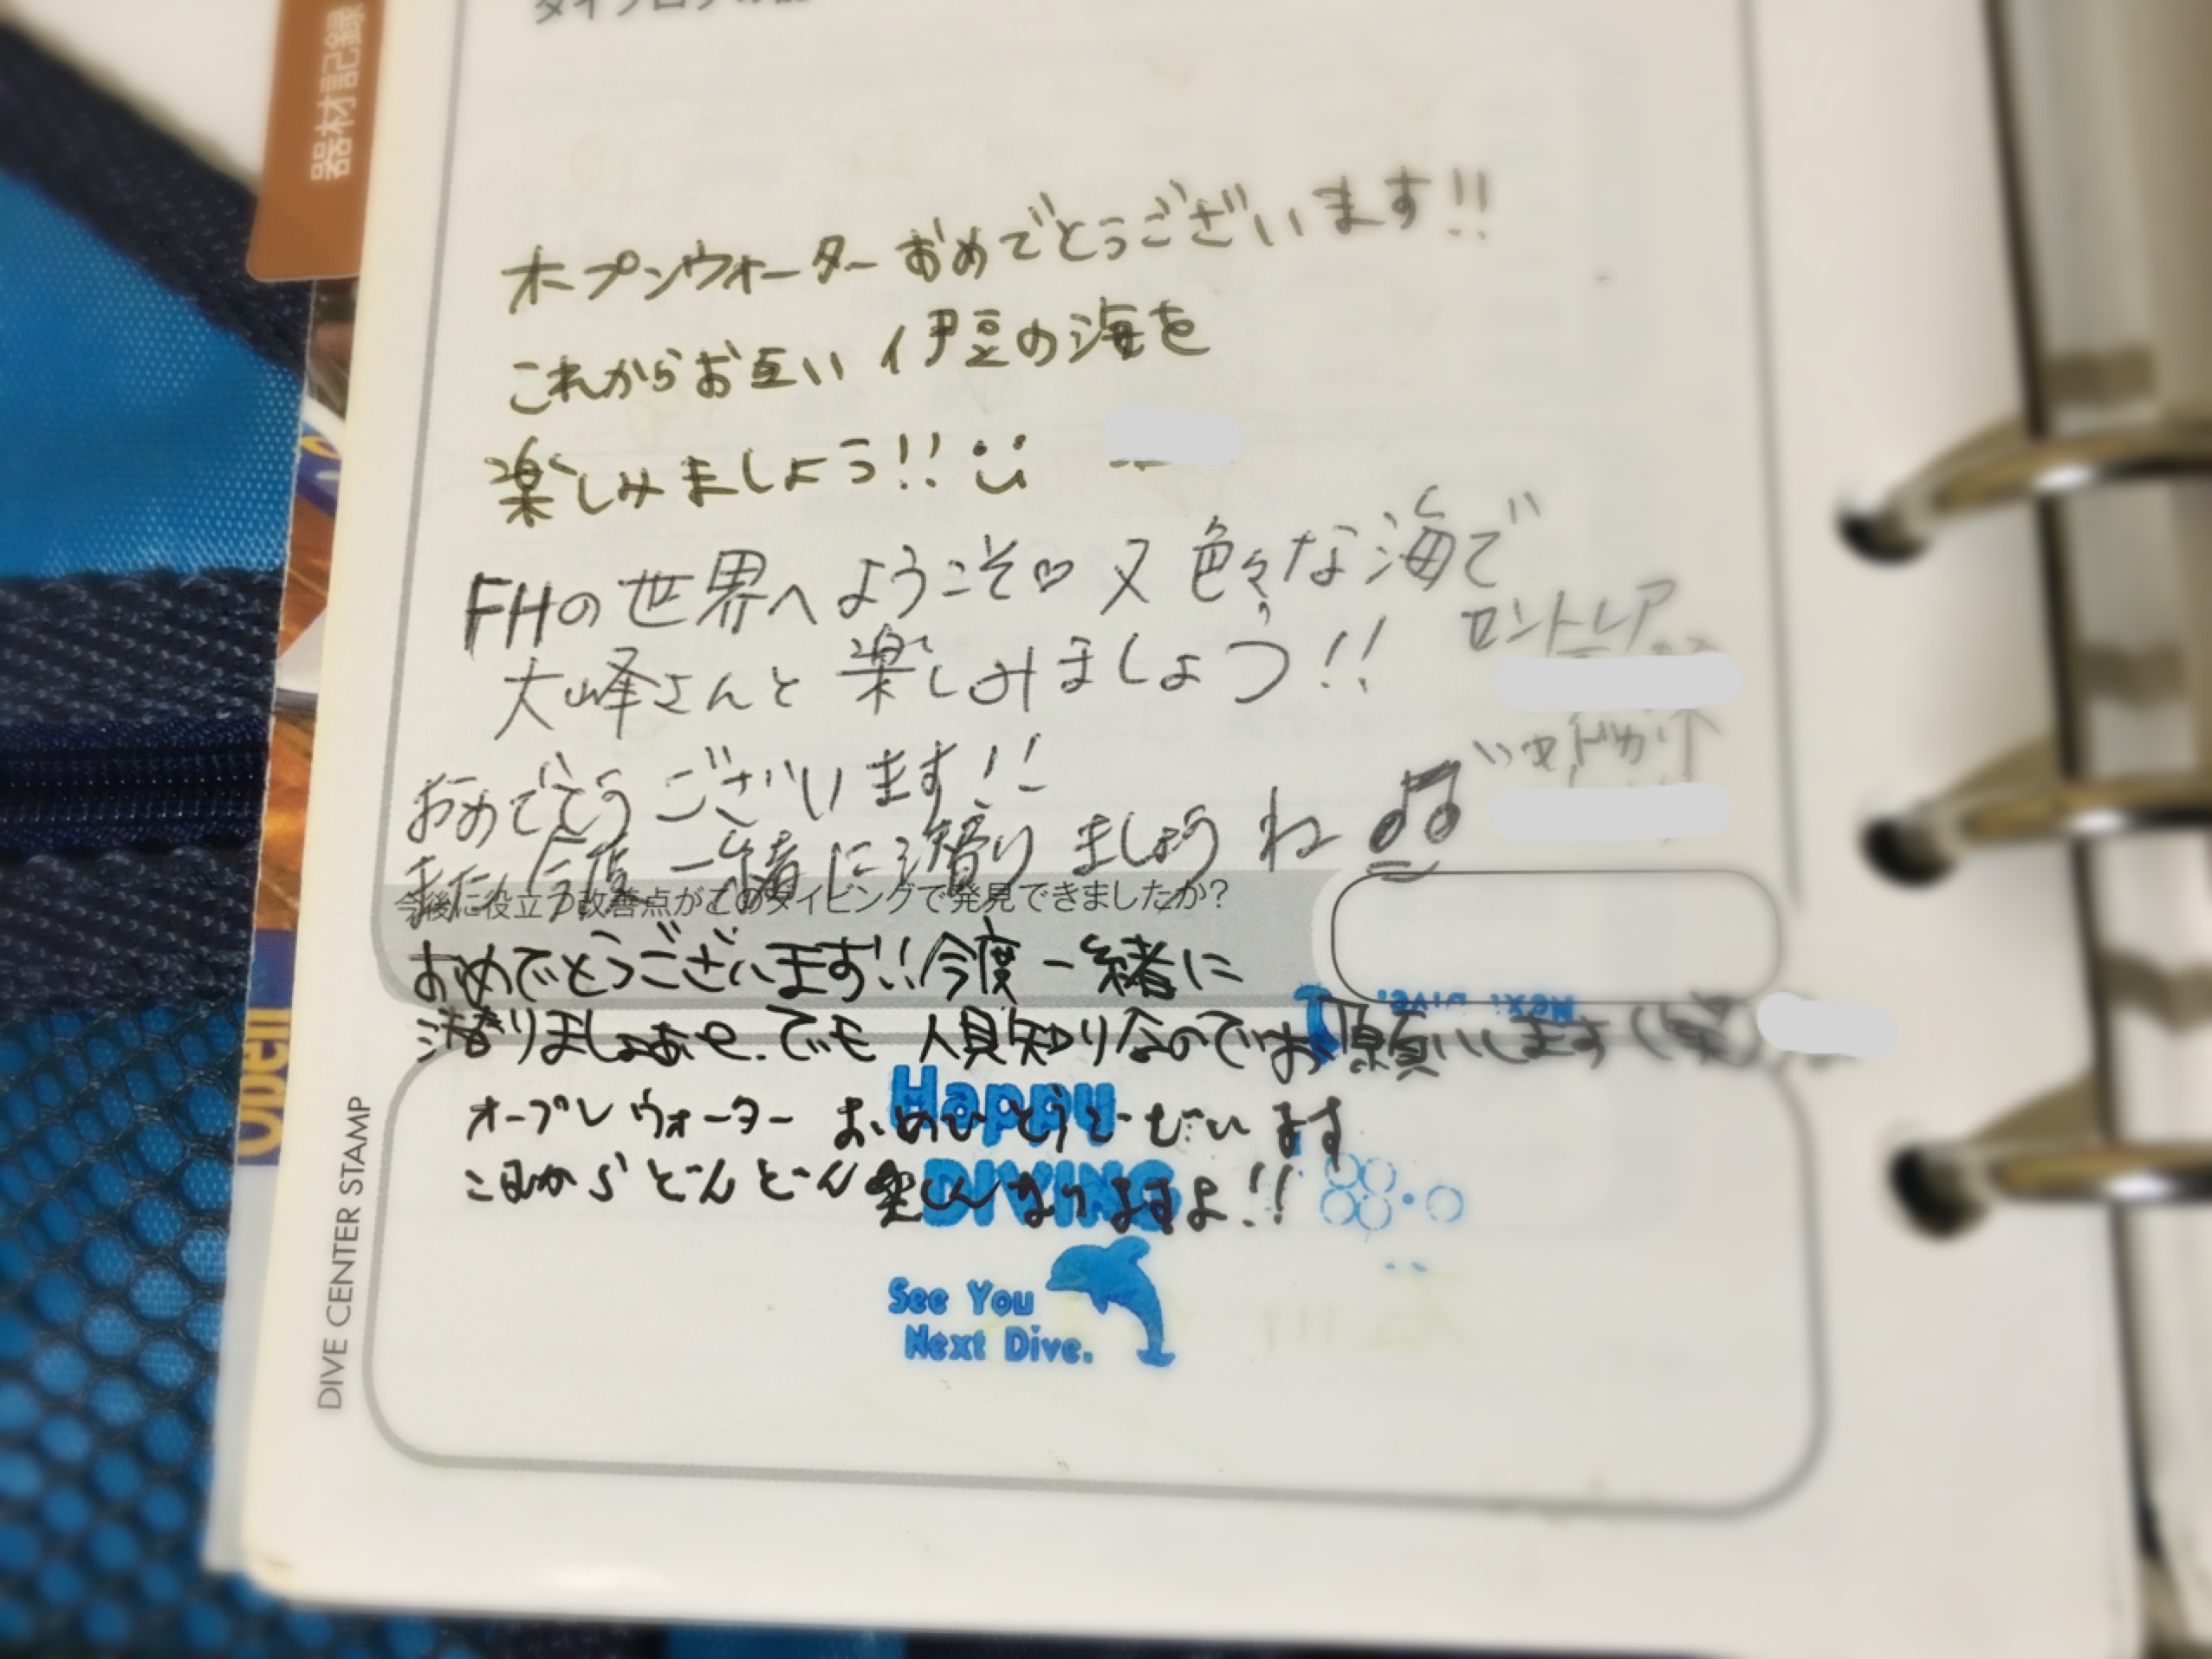 器材記録
オープンウォーターおめでとうございます!!
これからお互い 伊豆の海を
楽しみましょう!!
FHの世界へようこそ♡ 又 色々な海で
大峰さんと 楽しみましょう!!
セントレア
おめでとう ございます!!
また、今度 一緒に潜り ましょう ね ♫
今後に役立つ改善点がこのダイビングで発見できましたか?
おめでとうございます!!今度 一緒に
潜りましょおせ。でも 人見知りなのでお願いします(笑)
Next Dive.
オープンウォーター おめでとうございます
これから どんどん 楽しくなりますよ!!
Happy
DIVING
See You
Next Dive.
DIVE CENTER STAMP
Open